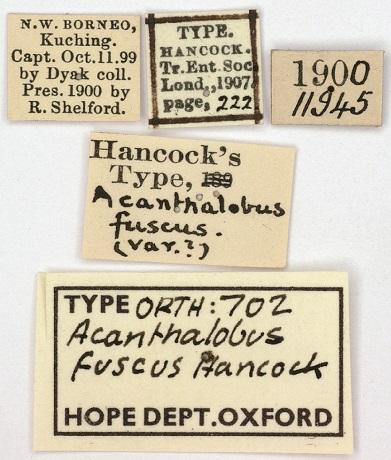 N.W. BORNEO,
Kuching.
Capt. Oct.11.99
by Dyak coll.
Pres. 1900 by
R. Shelford.
TYPE.
HANCOCK.
Tr. Ent. Soc
Lond., 1907.
page, 222
1900
11945
Hancock's
Type,
Acanthalobus
fuscus.
(var.?)
TYPE ORTH: 702
Acanthalobus
fuscus Hancock
HOPE DEPT. OXFORD